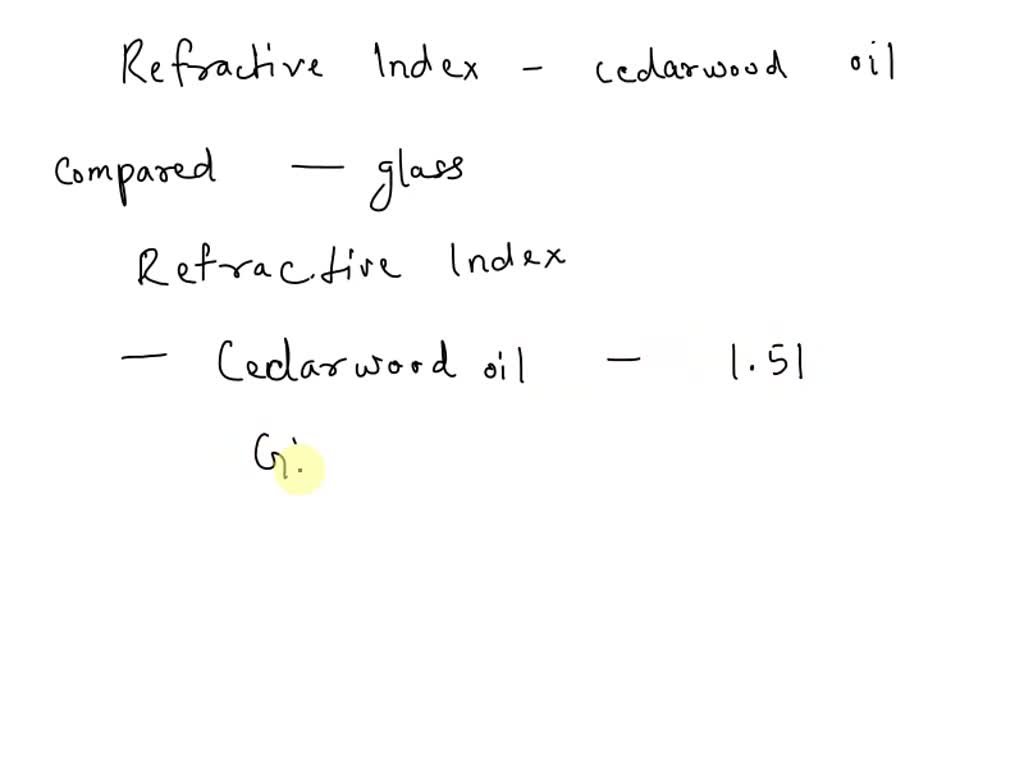 Refractive Index - cedarwood oil
Compared — glass
Refractive Index
— Cedarwood oil — 1.51